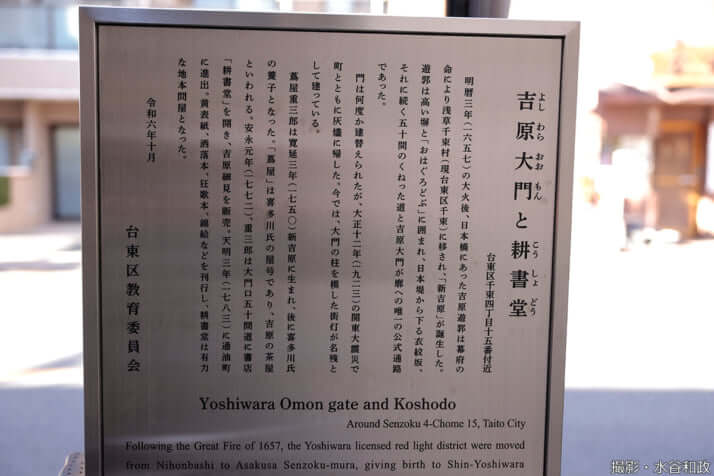 吉原大門と耕書堂
よしわらおおもん
こうしょどう
台東区千束四丁目十五番付近
明暦三年(一六五七)の大火後、日本橋にあった吉原遊郭は幕府の
命により浅草千束村(現台東区千束)に移され、「新吉原」が誕生した。
遊郭は高い塀と「おはぐろどぶ」に囲まれ、日本堤から下る衣紋坂、
それに続く五十間のくねった道と吉原大門が廓への唯一の公式通路
であった。
門は何度か建替えられたが、大正十二年(一九二三)の関東大震災で
町とともに灰燼に帰した。今では、大門の柱を模した街灯が名残と
して建っている。
蔦屋重三郎は寛延三年(一七五〇)新吉原に生まれ、後に喜多川氏
の養子となった。「蔦屋」は喜多川氏の屋号であり、吉原の茶屋
といわれる。安永元年(一七七二)、重三郎は大門口五十間道に書店
「耕書堂」を開き、吉原細見を販売。天明三年(一七八三)に通油町
に進出。黄表紙、洒落本、狂歌本、錦絵などを刊行し、耕書堂は有力
な地本問屋となった。
令和六年十月
台東区教育委員会
Yoshiwara Omon gate and Koshodo
Around Senzoku 4-Chome 15, Taito City
Following the Great Fire of 1657, the Yoshiwara licensed red light district were moved
from Nihonbashi to Asakusa Senzoku-mura, giving birth to Shin-Yoshiwara
撮影・水谷和政